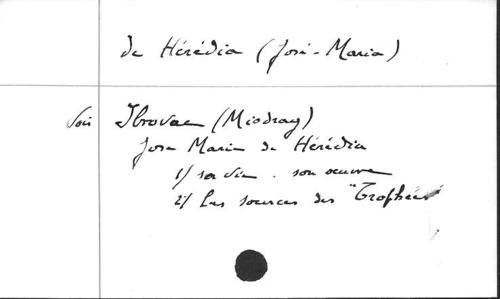 de Hérédia (José-Maria)
Voir Ibrovac (Miodrag)
José Maria de Hérédia
1/ sa vie. son oeuvre
2/ Les sources des "Trophées"